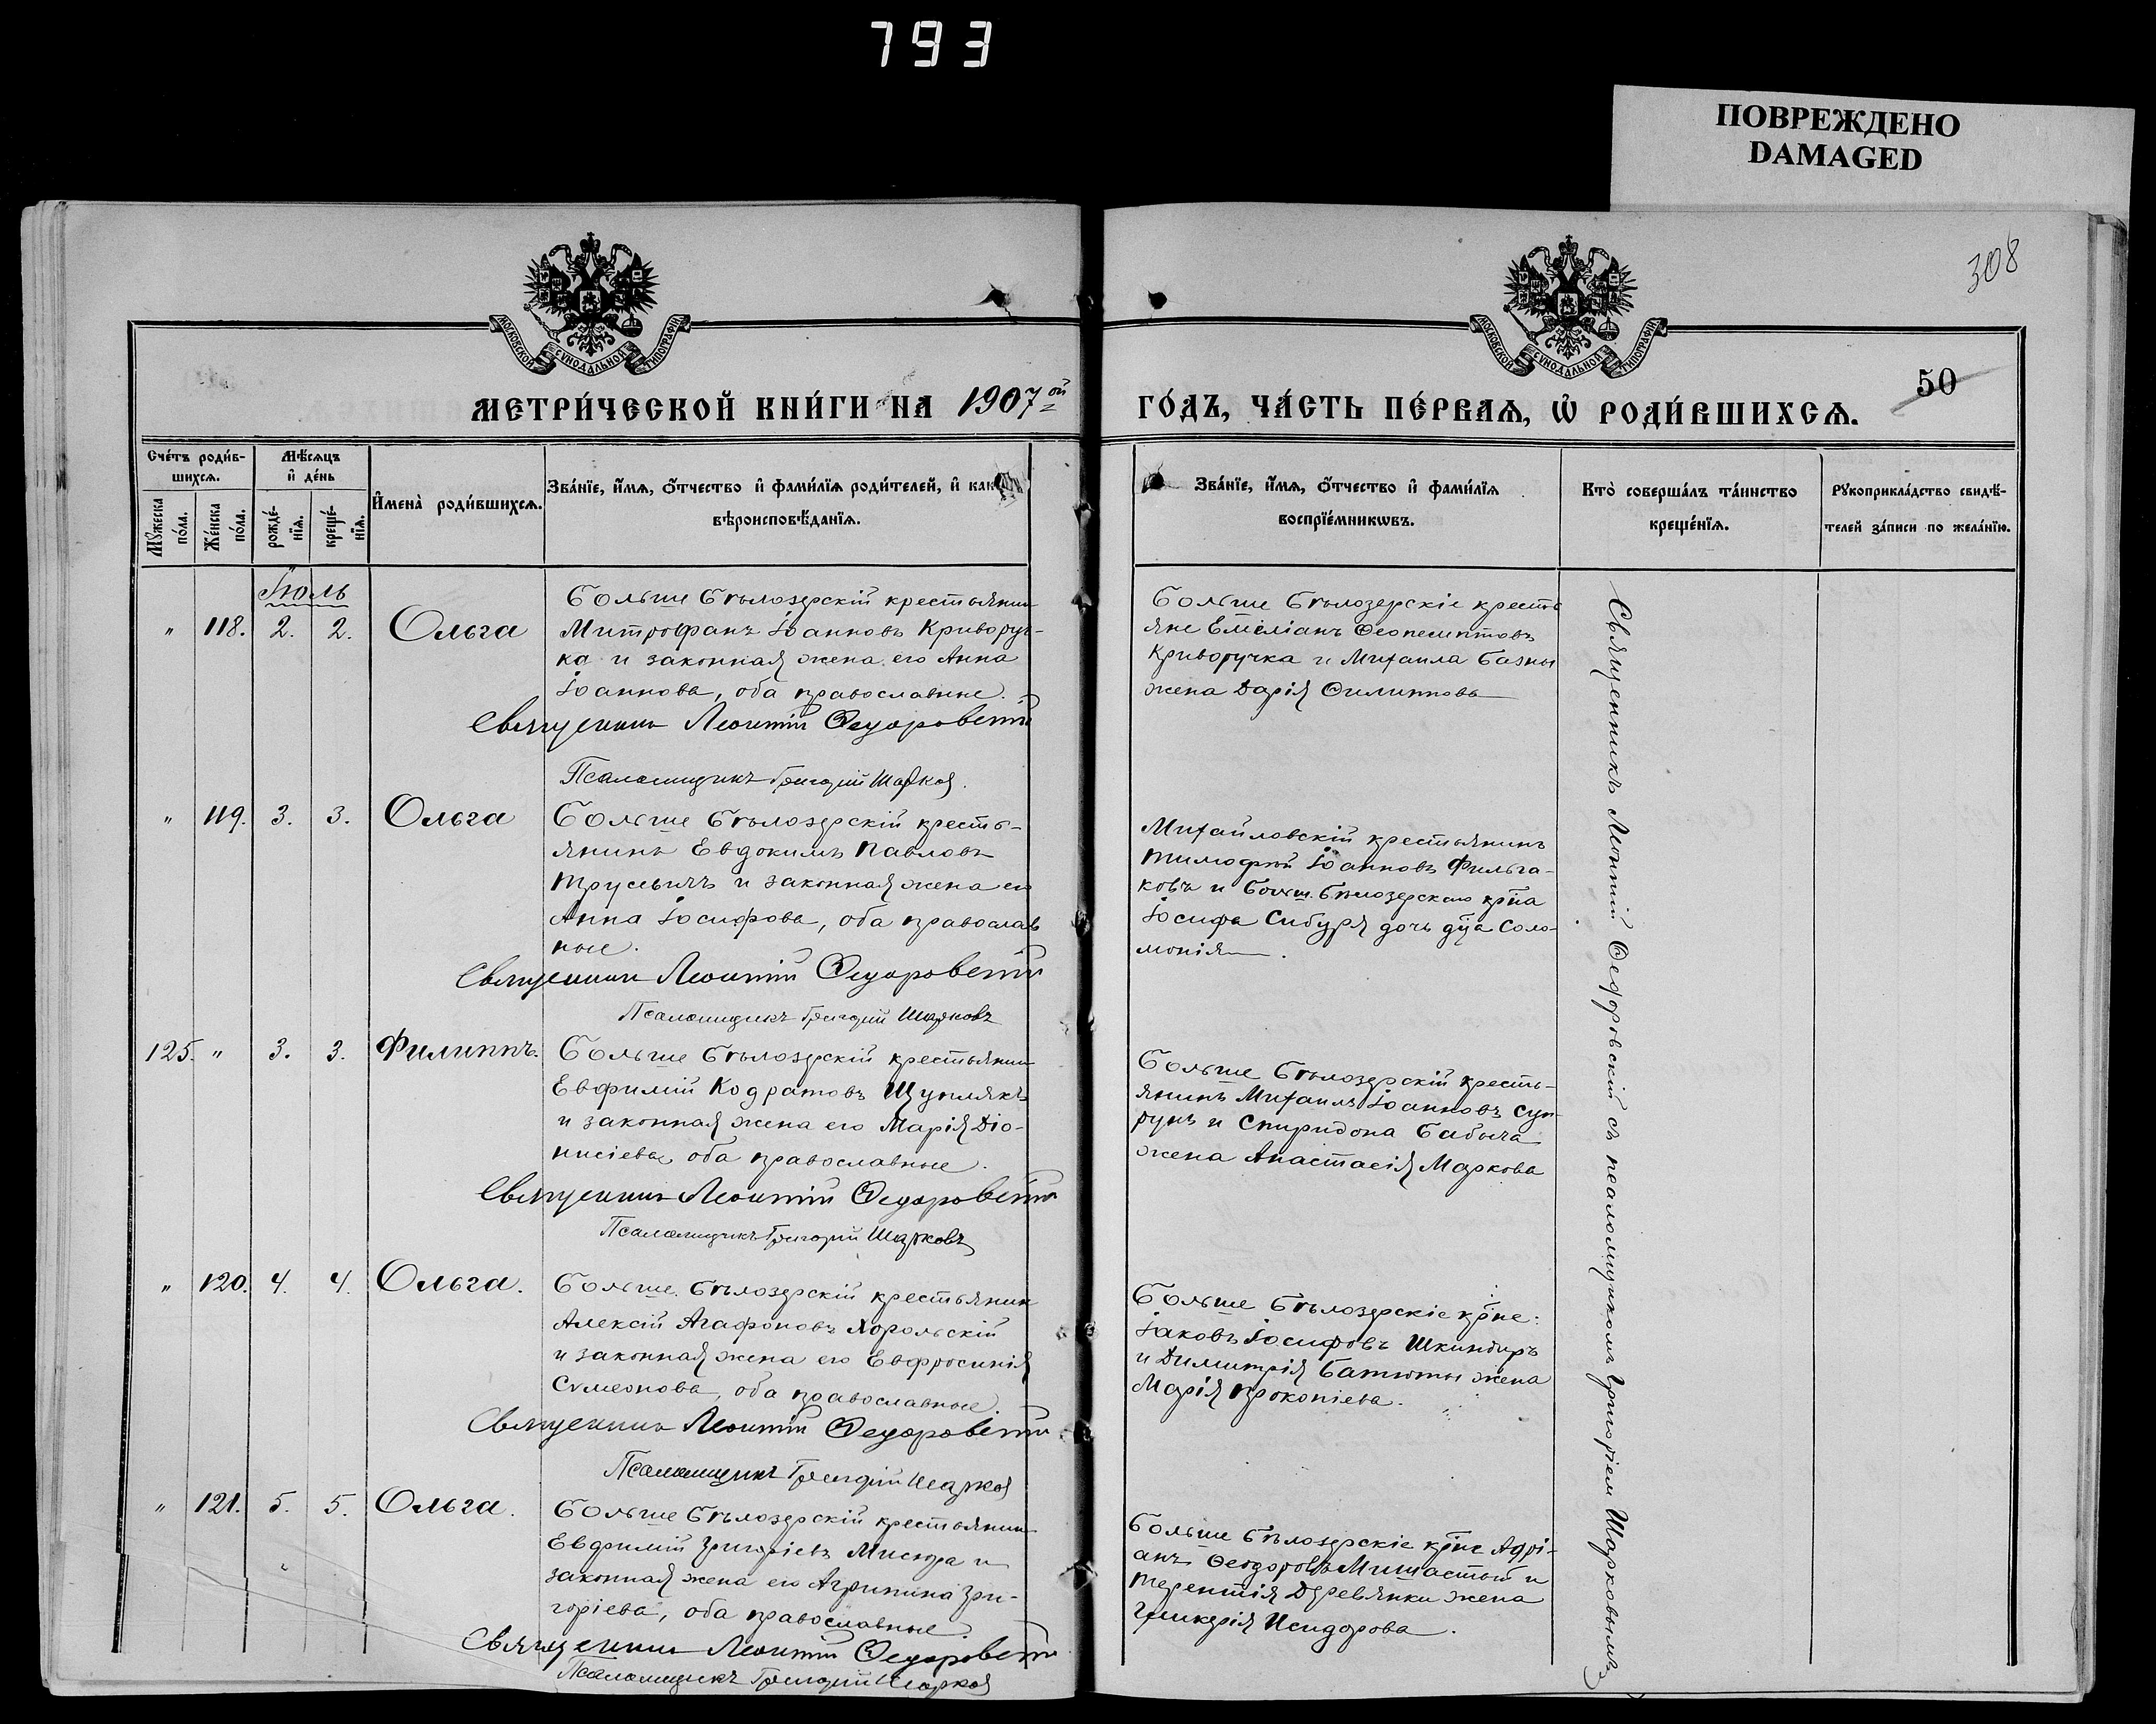 793
ПОВРЕЖДЕНО
DAMAGED
308
МОСКОВСКОЙ СѴНОДАЛЬНОЙ ТИПОГРАФІИ
МОСКОВСКОЙ СѴНОДАЛЬНОЙ ТИПОГРАФІИ
50
МЕТРИ́ЧЕСКОЙ КНИ́ГИ НА 1907ой
ГО́ДЪ, ЧА́СТЬ ПЕ́РВАЯ, Ѡ РОДИ́ВШИХСЯ.
Сче́тъ роди́в-
шихся.
Мѣ́сяцъ
и де́нь
Мужеска
по́ла.
Же́нска
по́ла.
рожде́-
нїя.
креще́-
нїя.
Имена̀ роди́вшихся.
Зва́нїе, и́мя, о́тчество и фами́лїя роди́телей, и как
вѣроисповѣ́данїя.
Зва́нїе, и́мя, о́тчество и фами́лїя
воспрїе́мникѡвъ.
Кто̀ соверша́лъ та́инство
креще́нїя.
Рукоприкла́дство свидѣ́-
телей за́писи по жела́нїю.
Іюль
" 118. 2. 2. Ольга
Больше Бѣлозерскій крестьянин
Митрофанъ Іоанновъ Криворуч-
ка и законная жена его Анна
Іоаннова, оба православные.
Священникъ Леонтій Федоровскій
Псаломщикъ Григорій Шарков
Больше Бѣлозерскіе кресть
яне Емеліанъ Ѳеопемптовъ
Криворучка и Михаила Базны
жена Дарія Филиппова
" 119. 3. 3. Ольга
Больше Бѣлозерскій кресть-
янинъ Евдокимъ Павловъ
Трусевичъ и законная жена его
Анна Іосифова, оба православ
ные.
Священникъ Леонтій Федоровскій
Псаломщикъ Григорій Шарковъ
Михайловскій крестьянинъ
Тимофей Іоанновъ Фильча-
ковъ и Больш. Бѣлозерскаго кр̃на
Іосифа Сибуря дочь д̃ца Соло-
монія.
125. " 3. 3. Филиппъ.
Больше Бѣлозерскій крестьянин
Евфимій Кодратовъ Щуплякъ
и законная жена его Марія Діо-
нисіева, оба православные.
Священникъ Леонтій Федоровскій
Псаломщикъ Григорій Шарковъ
Больше Бѣлозерскій кресть-
янинъ Михаилъ Іоанновъ Суп-
рунъ и Спиридона Бабыча
жена Анастасія Маркова
" 120. 4. 4. Ольга.
Больше Бѣлозерскій крестьянин
Алексій Агафоновъ Хорольскій
и законная жена его Евфросинія
Сѵмеонова, оба православные.
Священникъ Леонтій Федоровскій
Псаломщикъ Григорій Шарков
Больше Бѣлозерскіе кр̃не:
Іаковъ Іосифовъ Шкиндиръ
и Димитрія Батюты жена
Марія Прокопіева.
" 121. 5. 5. Ольга.
Больше Бѣлозерскій крестьянин
Евфимій Григоріевъ Мисюра и
законная жена его Агрипина Гри-
горіева, оба православные.
Священникъ Леонтій Федоровскій
Псаломщикъ Григорій Шарков
Больше Бѣлозерскіе кр̃не Адрі-
анъ Ѳеодоровъ Мишастый и
Терентія Деревянки жена
Гликерія Исидорова.
Священникъ Леонтій Ѳеодоровскій съ псаломщикомъ Григоріем Шарковымъ